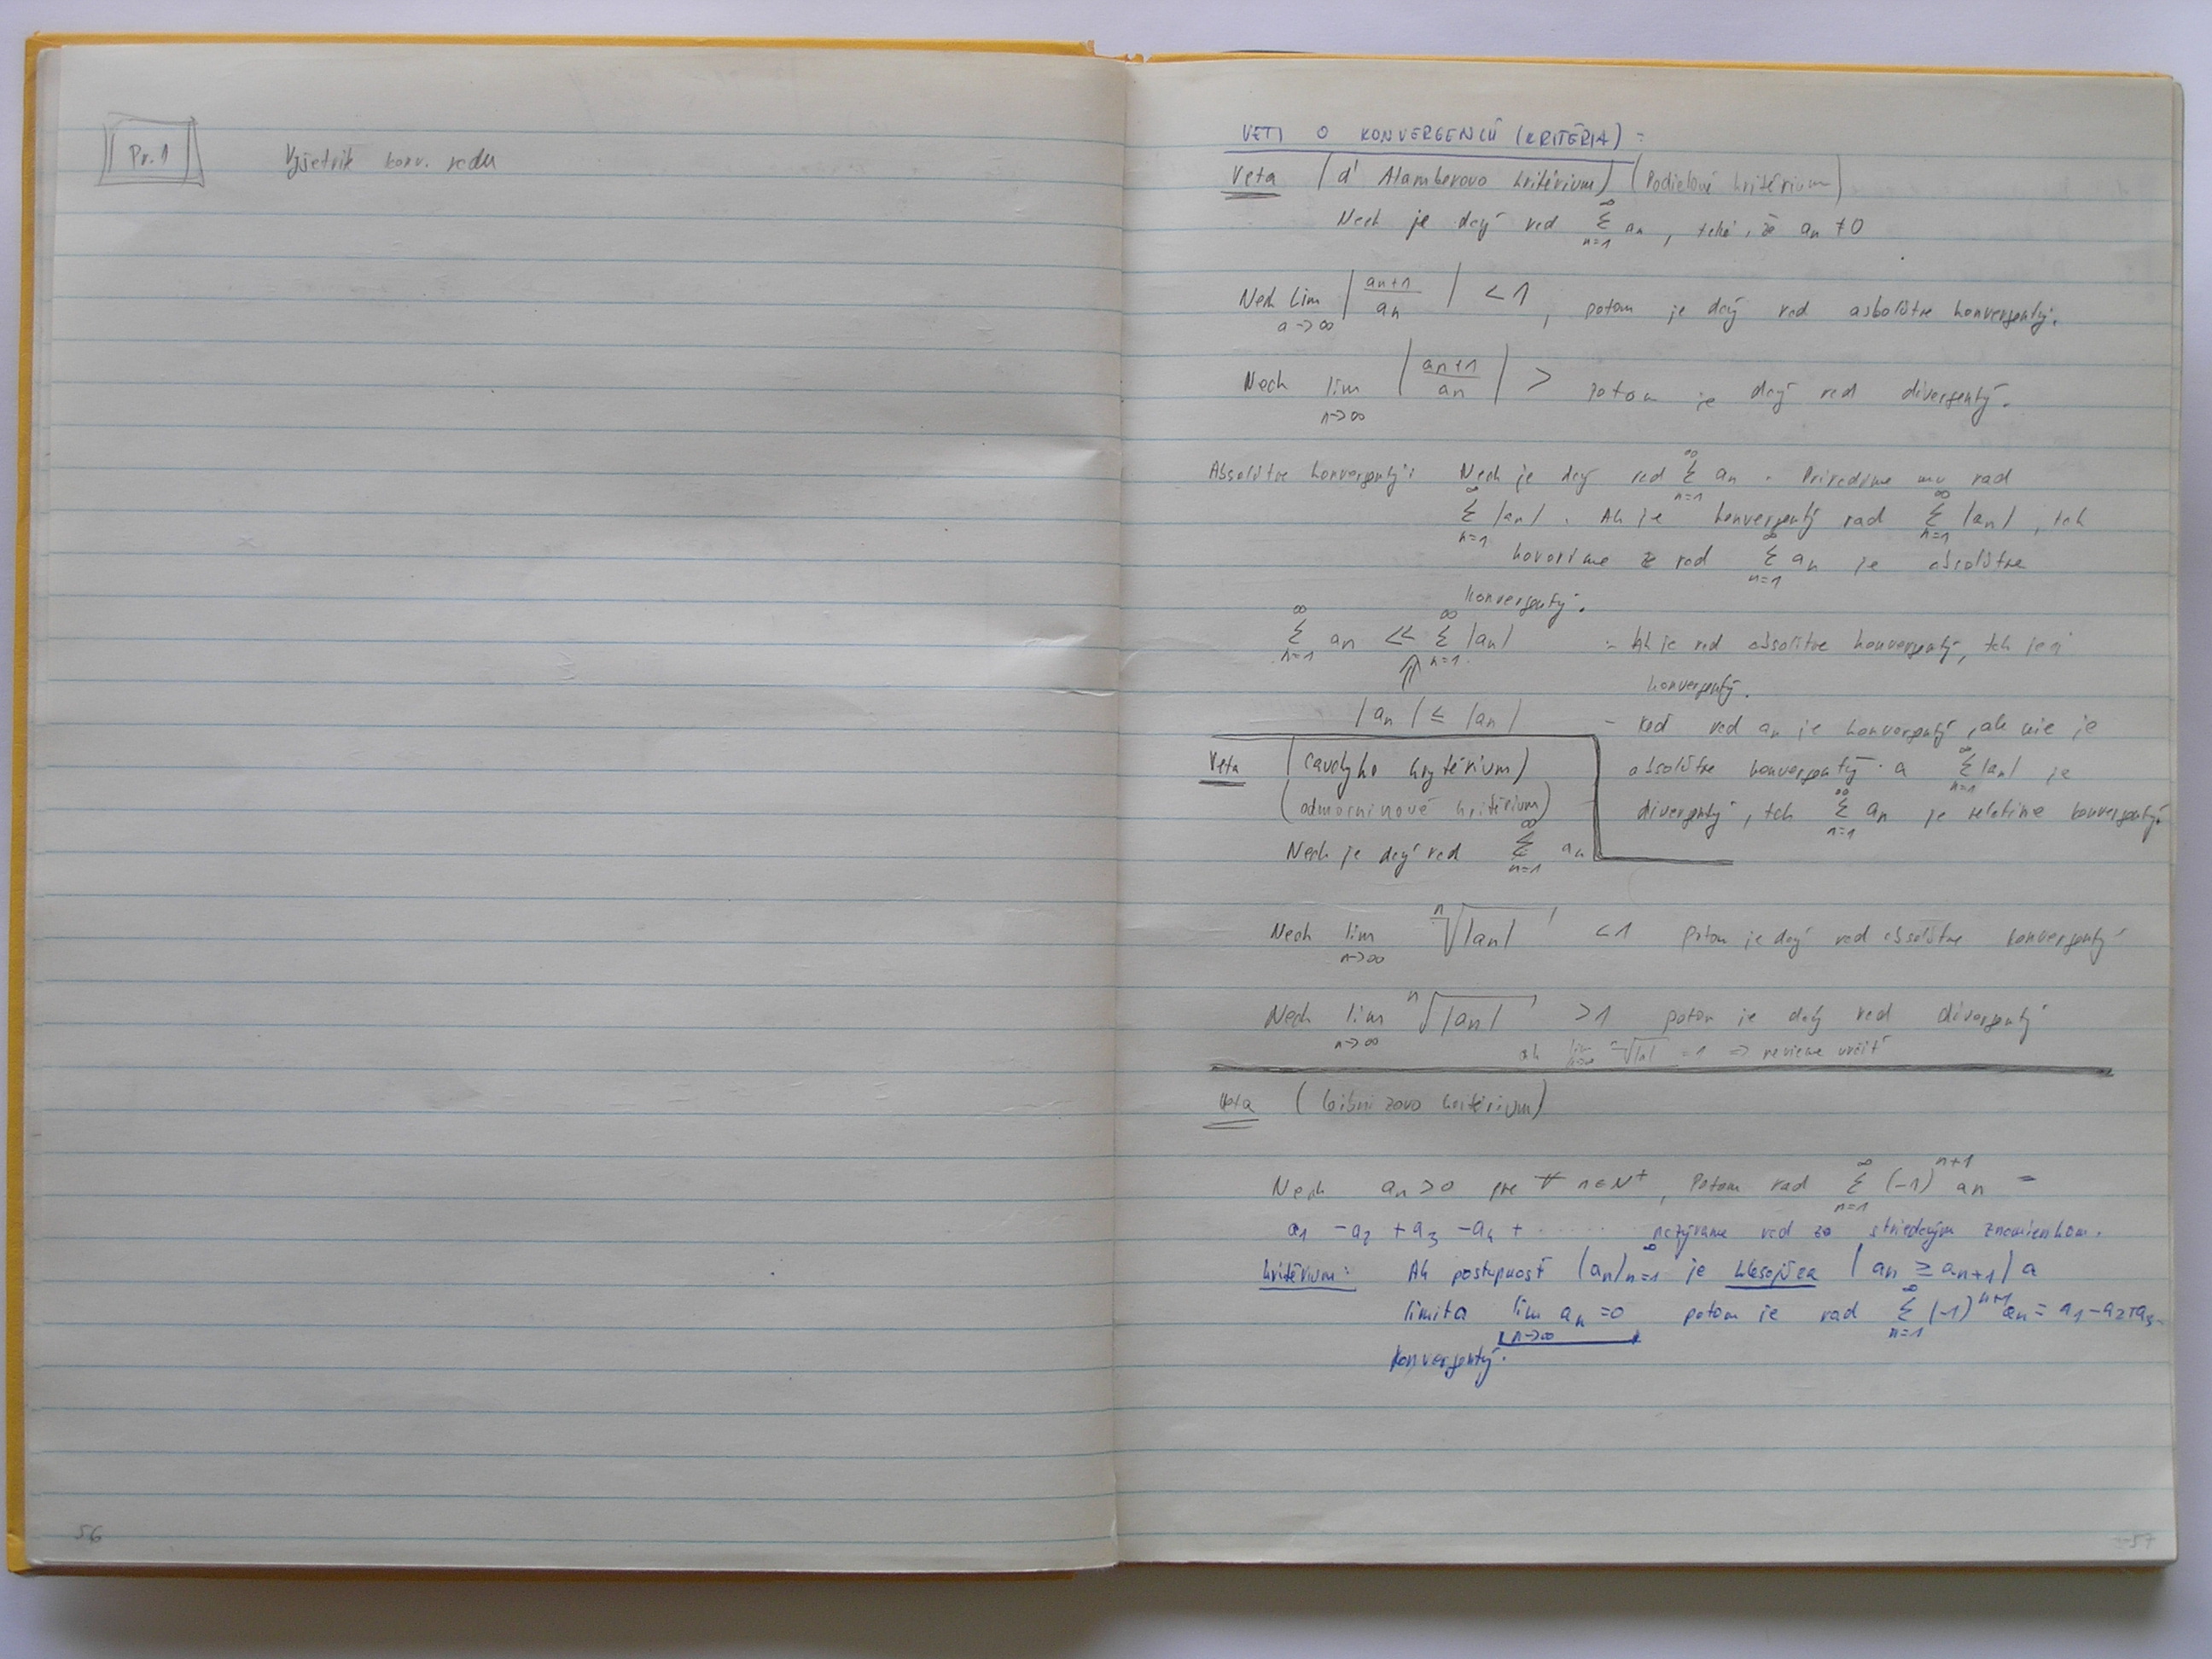 Pr. 1 Vyšetrite konv. radu
56
VETI O KONVERGENCII (KRITÉRIA) :
Veta (d' Alamberovo kritérium) (Podielové kritérium)
Nech je daný rad ∞ Σ n=1 an , taký, že an ≠ 0
Nech lim a->∞ | an+1 / an | < 1 , potom je daý rad asbolútne konvergentý.
Nech lim n->∞ | an+1 / an | > potom je daý rad divergentý.
Absolútne konvergentý: Nech je daý rad ∞ Σ n=1 an . Priradíme mu rad
∞ Σ n=1 |an| . Ak je konvergentý rad ∞ Σ n=1 |an| , tak
hovoríme že rad ∞ Σ n=1 an je absolútne
konvergentý.
∞ Σ n=1 an << ∞ Σ n=1 |an|
⇑
|an| ≤ |an|
- Ak je rad absolútne konvergentý, tak je aj
konvergentý.
- keď rad an je konvergentý, ale nie je
absolútne konvergentý a ∞ Σ n=1 |an| je
divergentý, tak ∞ Σ n=1 an je relatívne konvergentý.
Veta (Caudyho krytérium)
(odmocninové kritérium)
Nech je daý rad ∞ Σ n=1 an
Nech lim n->∞ n√|an| < 1 potom je daý rad absolútne konvergentý
Nech lim n->∞ n√|an| > 1 potom je daý rad divergentý
ak lim n->∞ n√|an| = 1 => nevieme určiť
Veta (Leibnizovo kritérium)
Nech an > 0 pre ∀ n∈N+ , Potom rad ∞ Σ n=1 (-1)^n+1 an =
a1 - a2 + a3 - a4 + ....... nazývame rad so striedavým znamienkom.
kritérium: Ak postupnosť (an)∞n=1 je klesajúca (an ≥ an+1) a
limita lim n->∞ an = 0 potom je rad ∞ Σ n=1 (-1)^n+1 an = a1 - a2 + a3 -
konvergentý.
57